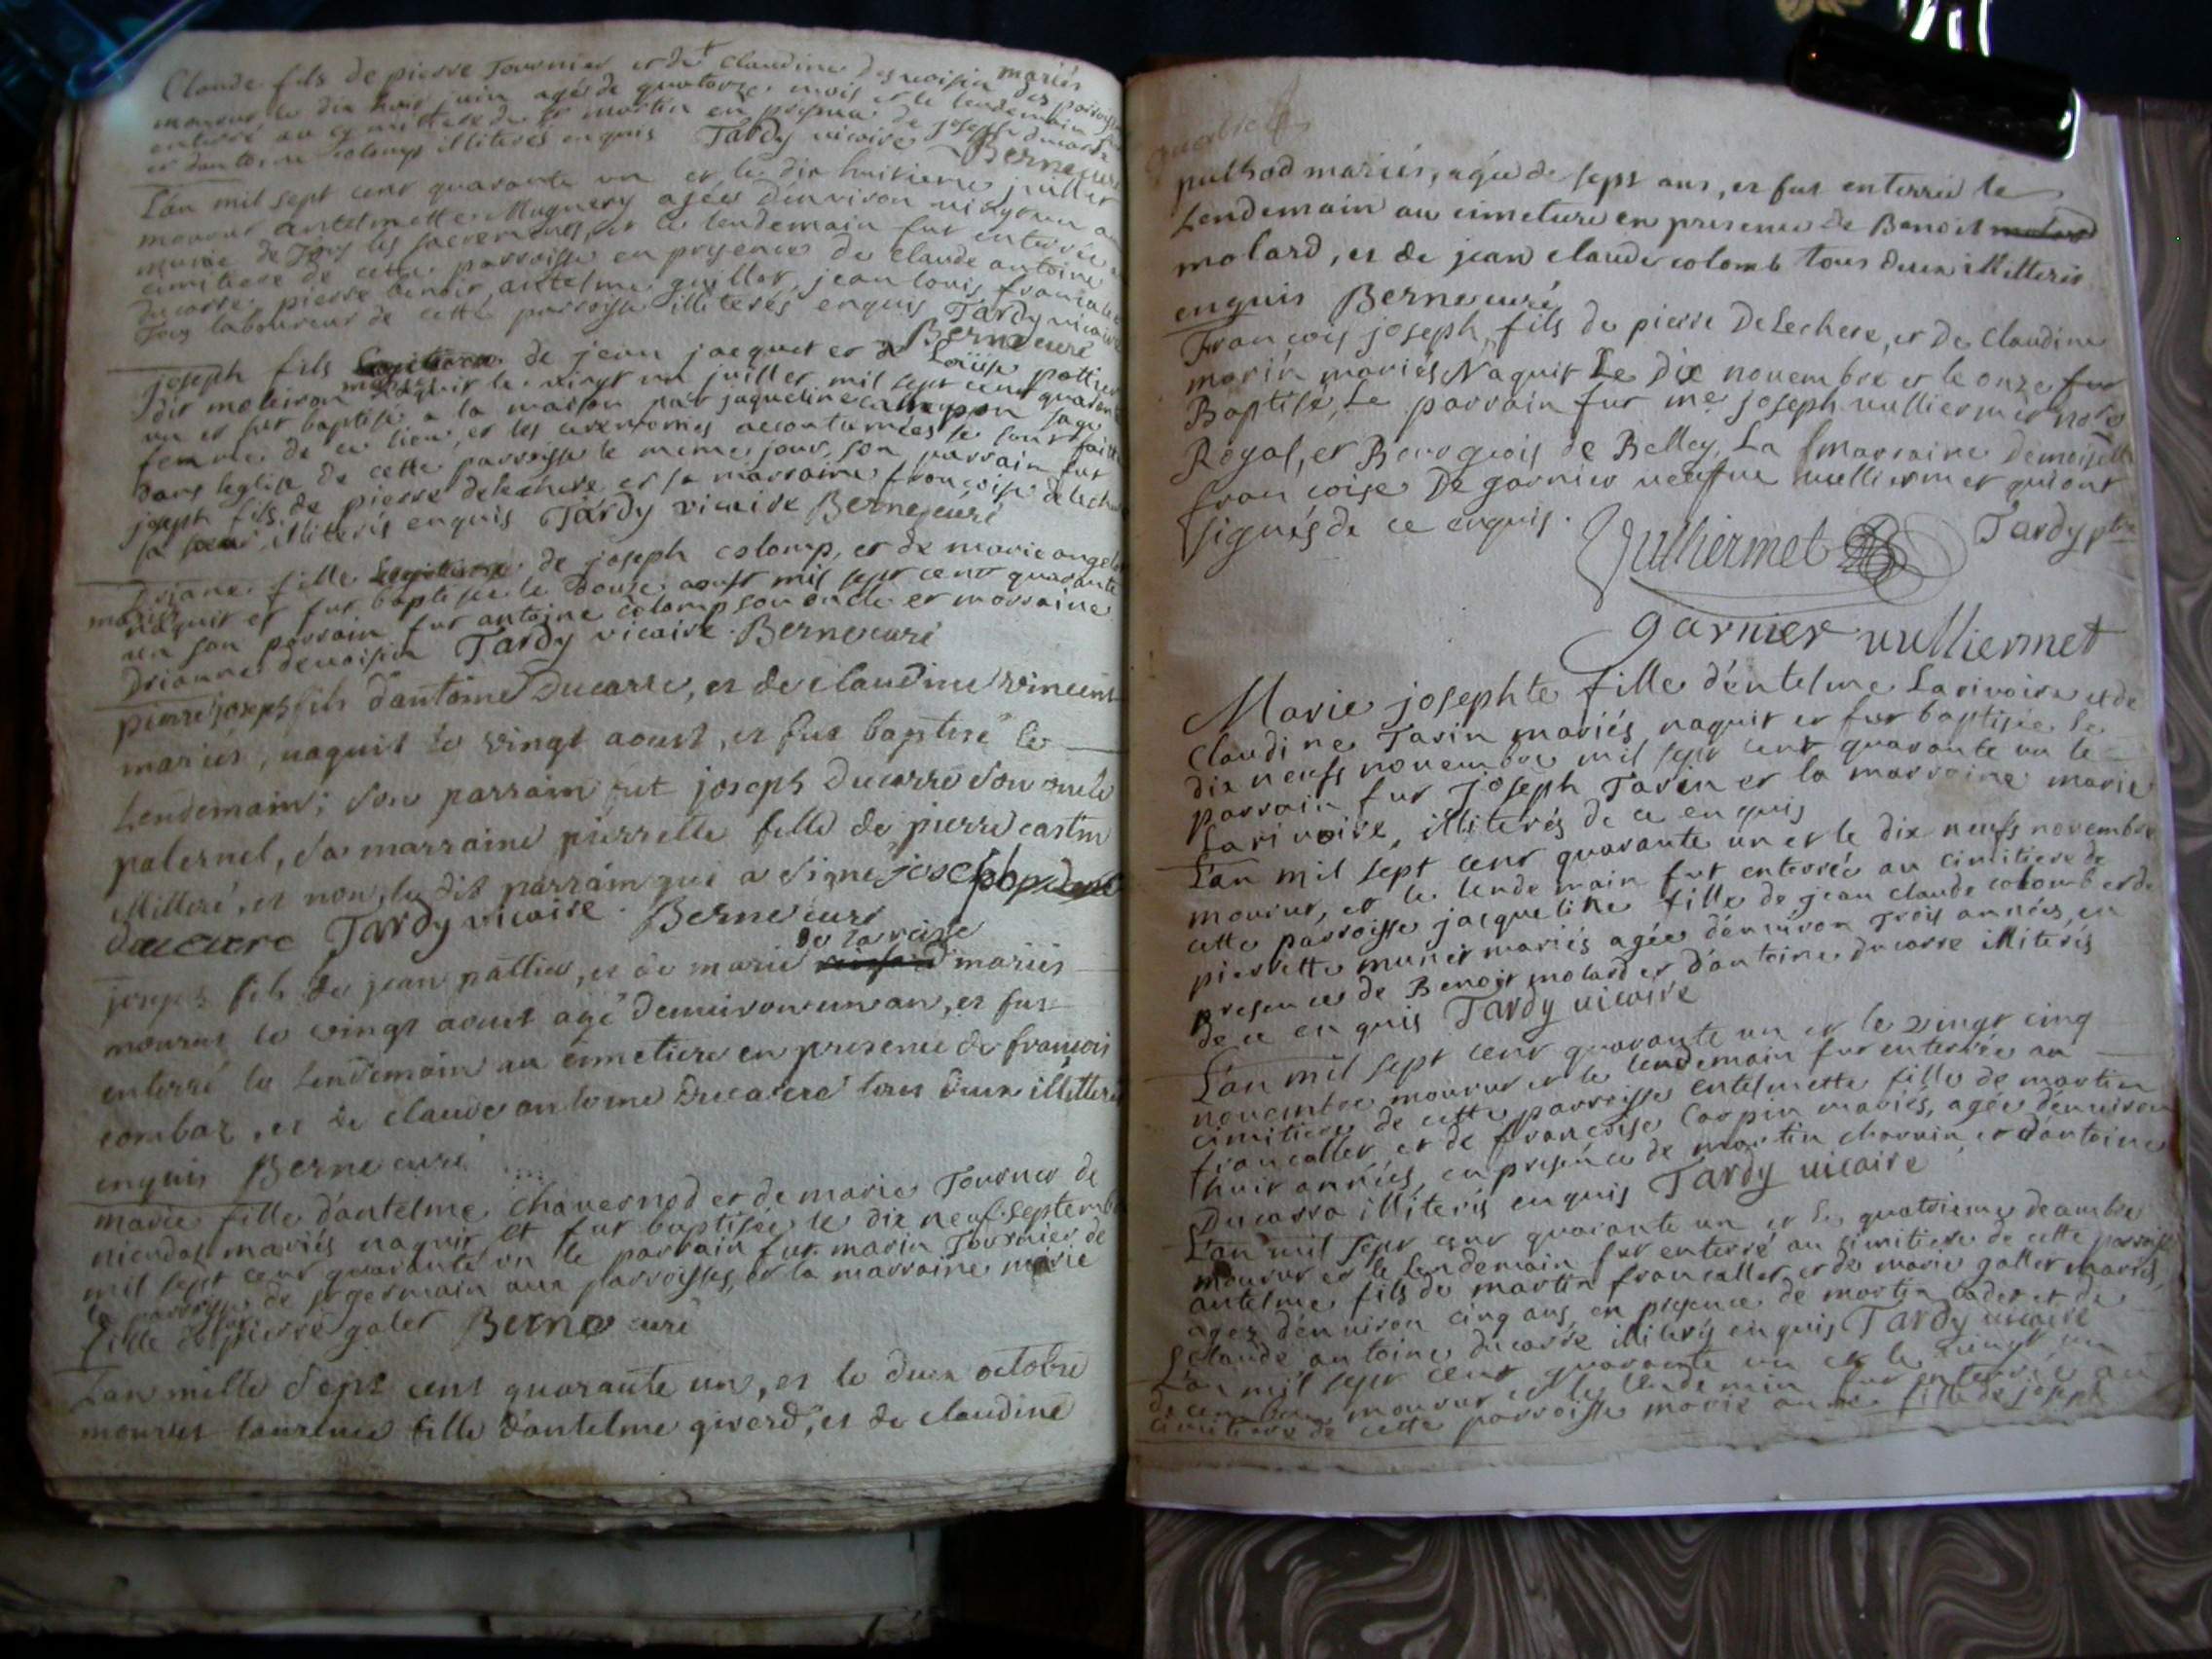 Claude fils de pierre Tournier et de Claudine desvoisin mariés
mourut le dix huit juin agé de quatorze mois et le lendemain fut
enterré au cymittere de St martin en presence de joseph
et d'antoine colomp illiterés enquis Tardy vicaire Berne curé
L'an mil sept cent quarante un et le dix huitieme juillet
mourut antelmette Mugnery agée d'environ
munie de Tous les sacrements, et le lendemain fut enterrée au
cimitiere de cette parroisse en presence de claude antoine
ducarre, pierre benoit, antelme guillot, jean louis francaller
Tous laboureur de cette parroisse illiterés enquis Tardy vicaire
Berne curé
joseph fils de jean jacquet et de Louise pottier
dit moleiron mariés naquit le vingt un juillet mil sept cent quarante
un et fut baptisé a la maison par jaqueline sage
femme de ce lieu, et les ceremonies accoutumées se sont faittes
dans leglise de cette parroisse le meme jour, son parrain fut
joseph fils de pierre delechere et sa marraine francoise delechere
sa soeur, illiterés enquis Tardy vicaire Berne curé
Driane fille de joseph colomp, et de marie
mariés naquit et fut baptisée le douze aoust mil sept cent quarante
un son parrain fut antoine colomp son oncle et marraine
Driane devoisin Tardy vicaire Berne curé
pierre joseph fils d'antoine Ducarre, et de claudine vincent
mariés, naquit le vingt aoust, et fut baptisé le
Lendemain; son parrain fut joseph Ducarre son oncle
paternel, sa marraine pierrette fille de pierre castin
illitteré, et non le dit parrain qui a signé joseph
ducare Tardy vicaire Berne curé
joseph fils de jean pattier, et de marie de lavoise mariés
mourut le vingt aoust agé d'environ un an, et fut
enterré le Lendemain au cimetiere en presence de francois
combaz, et de claude antoine Ducarre tous deux illitterés
enquis Berne curé
marie fille d'antelme chavernod et de marie Tournier de
mariés naquit et fut baptisée le dix neuf septembre
mil sept cent quarante un le parrain fut marin Tournier de
la parroisse de st germain aux parroisses, et la marraine marie
fille de pierre galet Berne curé
L'an mille sept cent quarante un, et le deux octobre
mourut laurence fille d'antelme giverd, et de claudine
puthod mariés, agée de sept ans, et fut enterrée le
Lendemain au cimetiere en presence de Benoit molard
molard, et de jean claude colomb tous deux illitteris
enquis Berne curé
François joseph, fils de pierre Delechere, et De Claudine
marin mariés Naquit Le Dix novembre et le onze fut
Baptisé, Le parrain fut me joseph vulliermet nore
Royal, et Bourgeois de Belley, La marraine Demoiselle
francoise De garnier veufve vulliermet qui ont
signés de ce enquis. Tardy ptre
Vulliermet
garnier vulliermet
Marie josephte fille d'entelme Larivoire et de
Claudine Tarin mariés naquit et fut baptisée le
dix neufs novembre mil sept cent quarante un le
parrain fut joseph Taren et la marraine marie
Larivoire, illiterés de ce enquis
L'an mil sept cent quarante un et le dix neufs novembre
mourut, et le lendemain fut enterrée au cimitiere de
cette parroisse jacqueline fille de jean claude colomb et de
pierrette munet mariés agée d'environ Trois années, en
presences de Benoit molard et d'antoine ducarre illiterés
de ce enquis Tardy vicaire
L'an mil sept cent quarante un et le vingt cinq
novembre mourut et le lendemain fut enterrée au
cimitiere de cette parroisse entelmette fille de martin
francaller, et de francoise Carpin mariés, agée d'environ
huit années, en presence de martin charvin, et d'antoine
Ducarra illiterés enquis Tardy vicaire
L'an mil sept cent quarante un et le quatrieme decembre
mourut et le Lendemain fut enterré au cimitiere de cette parroisse
antelme fils de martin francaller et de marie gallet mariés,
agez d'environ cinq ans, en presence de martin et de
Claude antoine ducarre illiterés enquis Tardy vicaire
L'an mil sept cent quarante un et le vingt un
decembre mourut et le lendemain fut enterrée au
cimitiere de cette parroisse marie anne fille de joseph